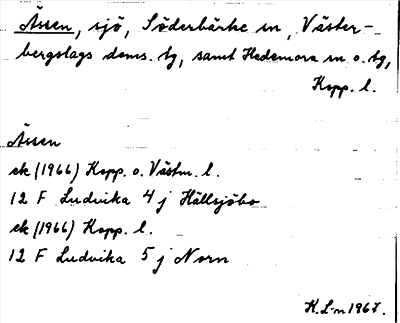 Ässen, sjö, Söderbärke sn, Väster-
bergslags doms. tg, samt Hedemora sn o. tg,
Kopp. l.
Ässen
ek (1966) Kopp. o. Västm. l.
12 F Ludvika 4 j Hällsjöbo
ek (1966) Kopp. l.
12 F Ludvika 5 j Norn
K.L-n 1967.